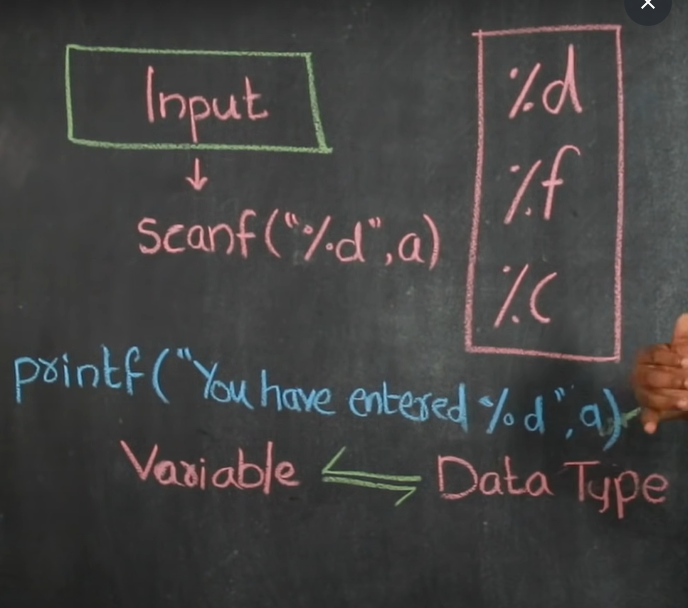 Input
scanf("%d",a)
%d
%f
%c
printf("You have entered %d",a)
Variable Data Type